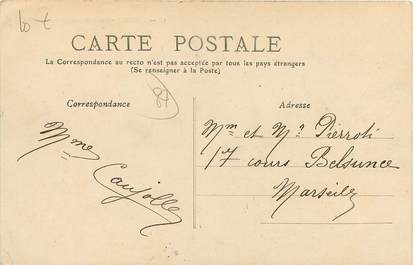 CARTE POSTALE
La Correspondance au recto n'est pas acceptée par tous les pays étrangers
(Se renseigner à la Poste)
Correspondance
Adresse
Mme
Caujolle
Mm et Mr Pierroti
17 cours Belsunce
Marseille
87